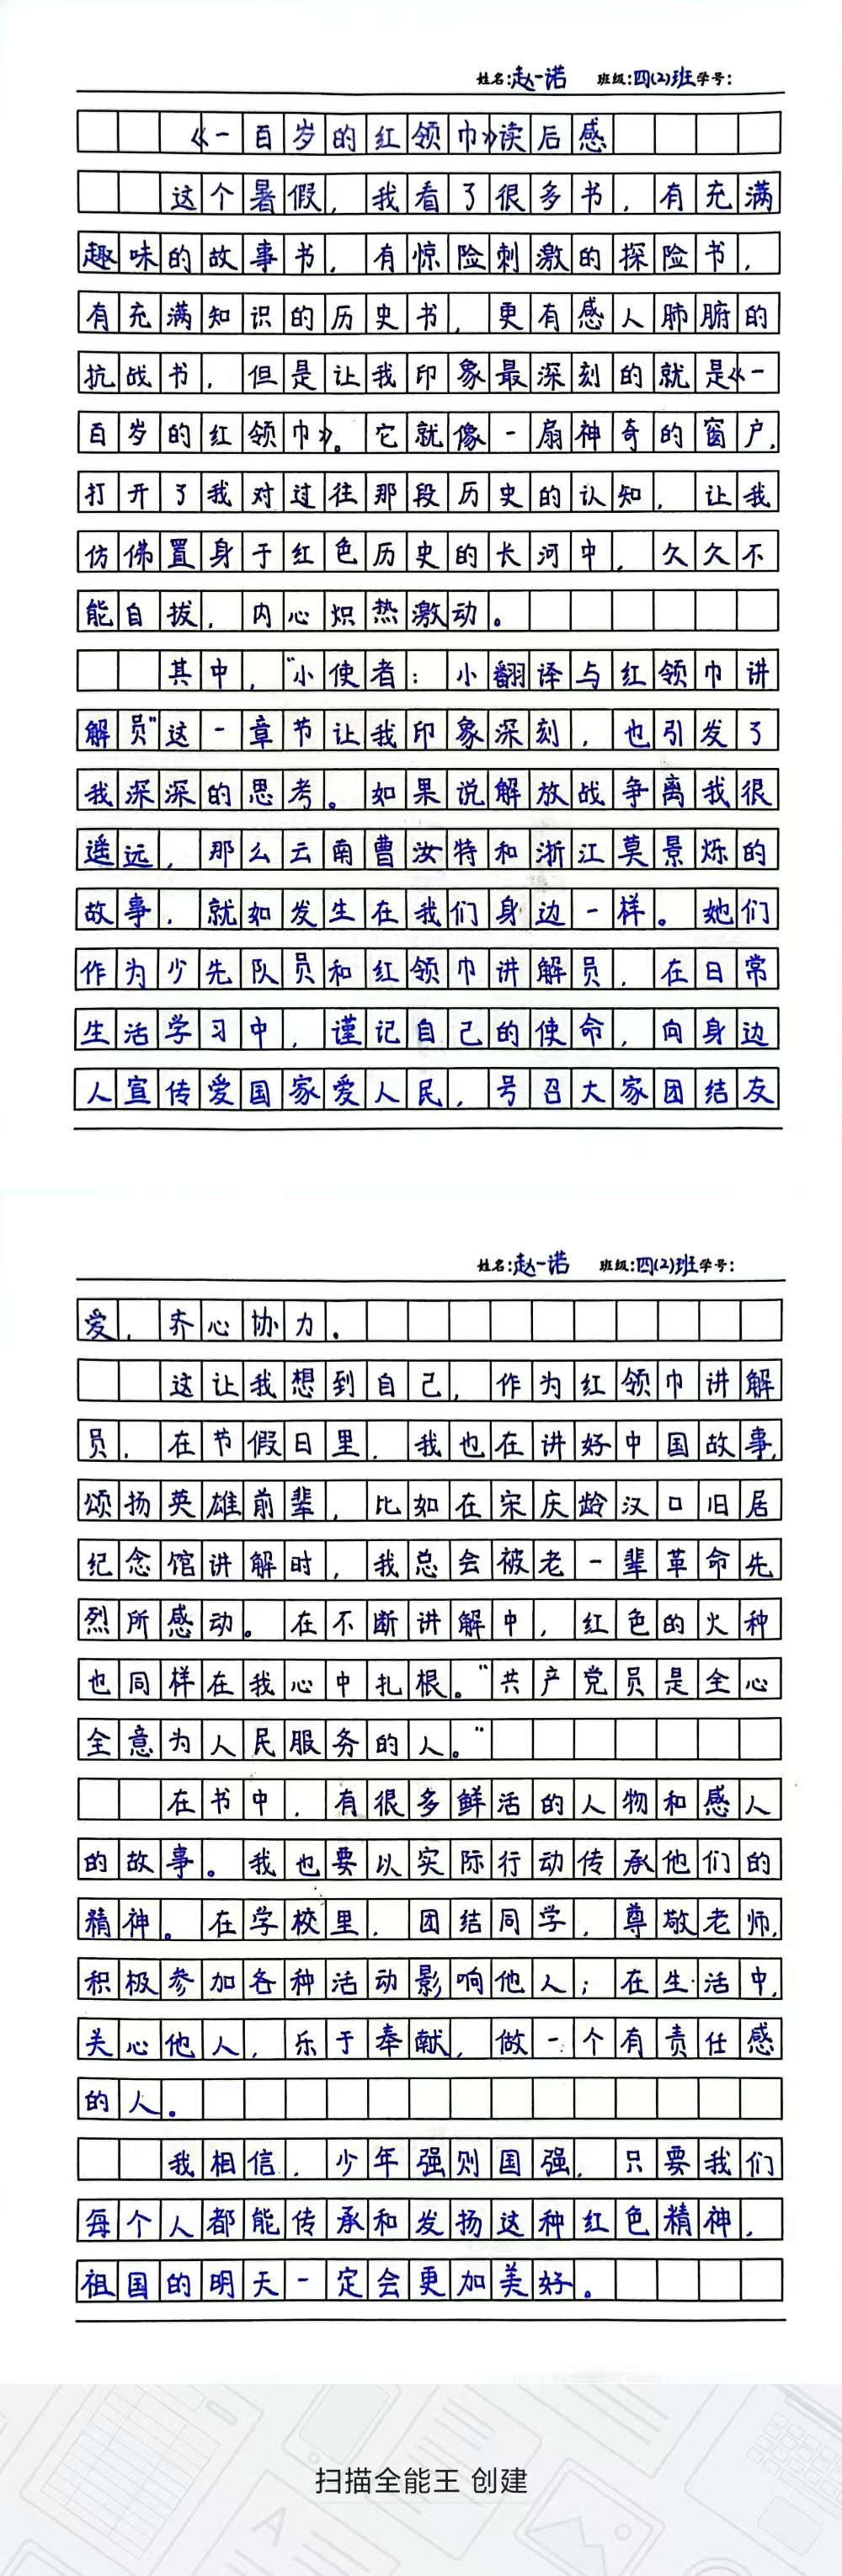 姓名:赵一诺 班级:四(2)班学号:
《一百岁的红领巾》读后感
这个暑假，我看了很多书，有充满
趣味的故事书，有惊险刺激的探险书，
有充满知识的历史书，更有感人肺腑的
抗战书，但是让我印象最深刻的就是《一
百岁的红领巾》。它就像一扇神奇的窗户，
打开了我对过往那段历史的认知，让我
仿佛置身于红色历史的长河中，久久不
能自拔，内心炽热激动。
其中，“小使者：小翻译与红领巾讲
解员”这一章节让我印象深刻，也引发了
我深深的思考。如果说解放战争离我很
遥远，那么云南曹汝特和浙江莫景烁的
故事，就如发生在我们身边一样。她们
作为少先队员和红领巾讲解员，在日常
生活学习中，谨记自己的使命，向身边
人宣传爱国家爱人民，号召大家团结友
姓名:赵一诺 班级:四(2)班学号:
爱，齐心协力。
这让我想到自己，作为红领巾讲解
员，在节假日里，我也在讲好中国故事，
颂扬英雄前辈，比如在宋庆龄汉口旧居
纪念馆讲解时，我总会被老一辈革命先
烈所感动。在不断讲解中，红色的火种
也同样在我心中扎根。“共产党员是全心
全意为人民服务的人。”
在书中，有很多鲜活的人物和感人
的故事。我也要以实际行动传承他们的
精神。在学校里，团结同学，尊敬老师，
积极参加各种活动影响他人；在生活中，
关心他人，乐于奉献，做一个有责任感
的人。
我相信，少年强则国强，只要我们
每个人都能传承和发扬这种红色精神，
祖国的明天一定会更加美好。
扫描全能王 创建